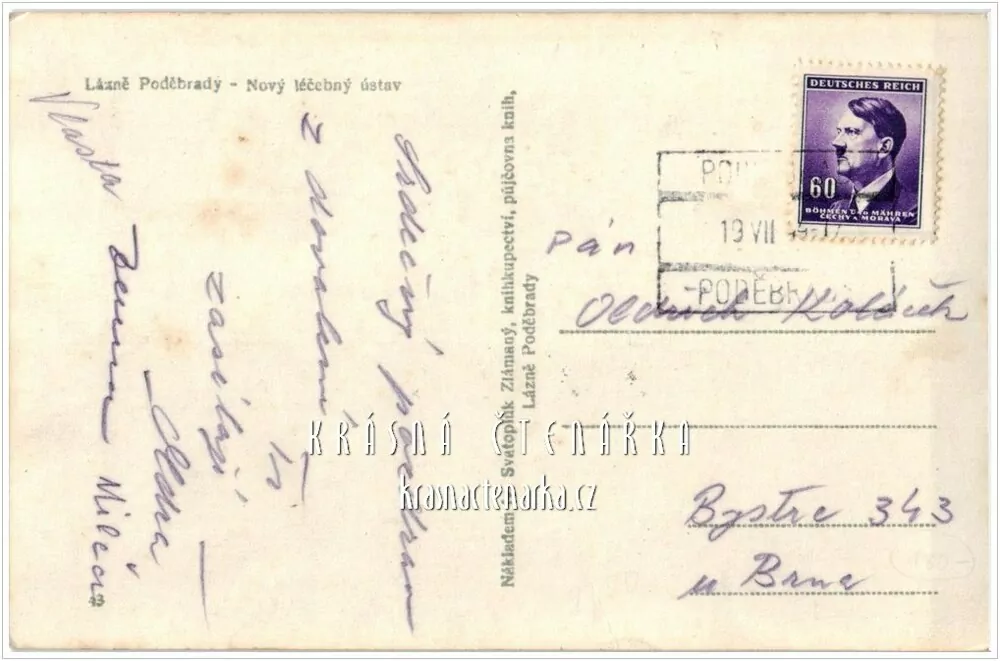 Lázně Poděbrady - Nový léčebný ústav
Srdečný pozdrav
z dovolené
Vám
zasílají
Vlasta
Zdena Milča
Nákladem Svatopluk Zlámaný, knihkupectví, půjčovna knih,
Lázně Poděbrady
DEUTSCHES REICH
60
BÖHMEN UND MÄHREN
ČECHY A MORAVA
19 VII
PODĚBR
Pán
Oldřich Koláček
Bystrc 343
u Brna
43
KRÁSNÁ ČTENÁŘKA
krasnactenarka.cz